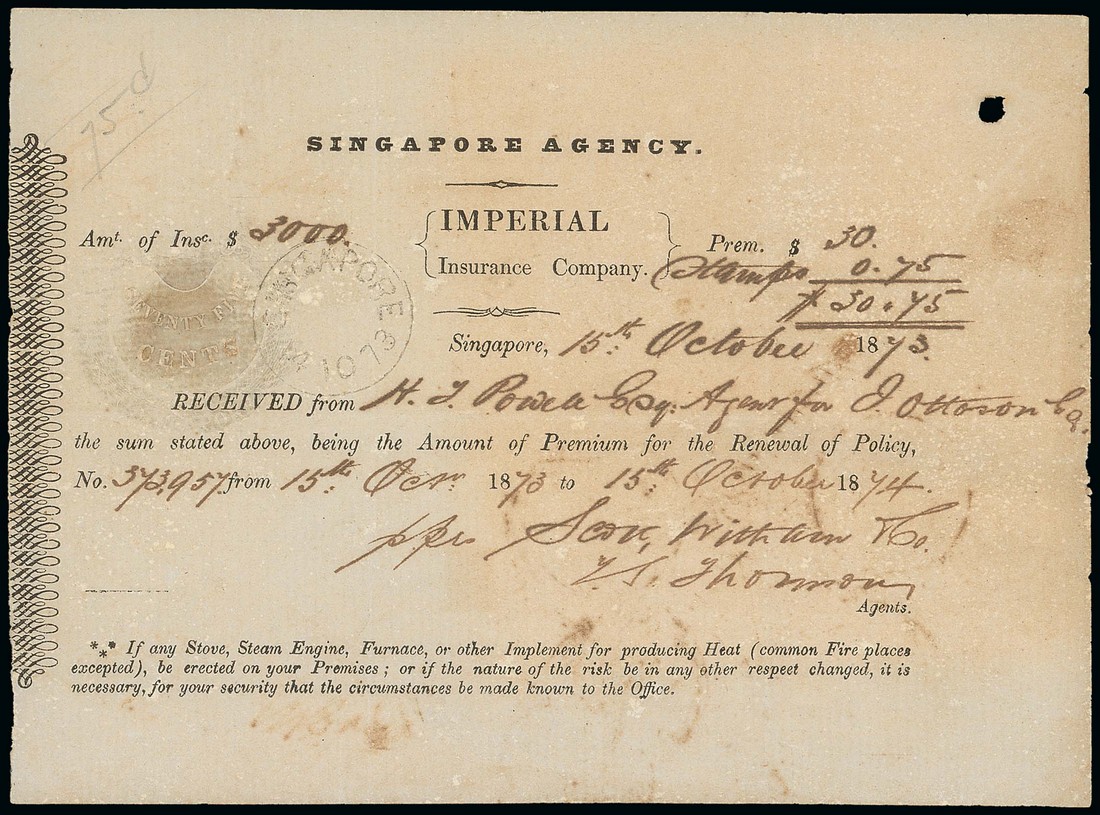 75 d
SINGAPORE AGENCY.
Amt. of Insc. $ 3000.
IMPERIAL
Insurance Company.
Prem. $ 30.
Stamps 0.75
$ 30.75
SEVENTY FIVE
CENTS
SINGAPORE
Singapore, 15th October 1873.
RECEIVED from H. J. Powell Esq: Agent for J. Ottoson Esq.
the sum stated above, being the Amount of Premium for the Renewal of Policy,
No. 373.957. from 15th Octr. 1873 to 15th October 1874.
ppro Scott, Witham & Co.
Thomson
Agents.
*** If any Stove, Steam Engine, Furnace, or other Implement for producing Heat (common Fire places
excepted), be erected on your Premises ; or if the nature of the risk be in any other respect changed, it is
necessary, for your security that the circumstances be made known to the Office.